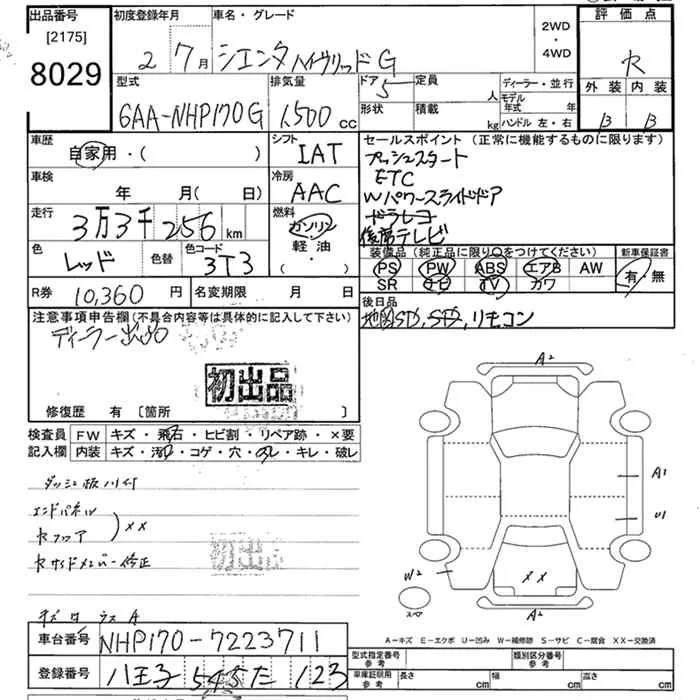 出品番号
[2175]
8029
初度登録年月
2 7月
車名・グレード
シエンタ ハイブリッドG
2WD
・
4WD
評価点
R
外装 内装
B B
型式
6AA-NHP170G
排気量
1,500 cc
ドア 5
形状
定員 人
積載 kg
ディーラー・並行
モデル年式 年
ハンドル 左・右
車歴
自家用・( )
シフト
IAT
車検
年 月( 日)
冷房
AAC
走行
3万3千256 km
燃料
ガソリン
軽油・
( ・ )
色
レッド
色替
色コード
3T3
R券
10,360 円
名変期限 月 日
セールスポイント(正常に機能するものに限ります)
プッシュスタート
ETC
Wパワースライドドア
ドラレコ
後席テレビ
装備品(純正品に限り○をつけてください)
PS PW ABS エアB AW
SR ナビ TV カワ
新車保証書
有・無
後日品
地図SD, STD, リモコン
注意事項申告欄(不具合内容等は具体的に記入して下さい)
ディーラー出品
初出品
修復歴 有 [箇所 ]
検査員 FW キズ・飛石・ヒビ割・リペア跡・×要
記入欄 内装 キズ・汚れ・コゲ・穴・スレ・キレ・破レ
エンドパネル
××
修正
初出品
A2
A1
U1
W2
××
スペア
A2
A-キズ E-エクボ U-凹み W-補修跡 S-サビ C-腐食 XX-交換済
車台番号 NHP170-7223711
登録番号 八王子 545 た 123
型式指定番号
参考
類別区分番号
参考
車庫証明用
参考
長さ cm
幅 cm
高さ cm